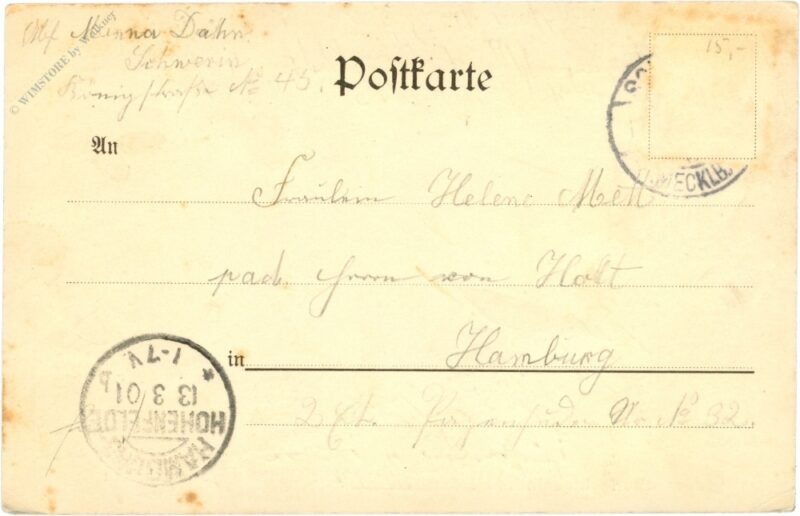 Minna Dahn
Schwerin
Königstraße No 45.
© WIMSTORE by Welkner
Postkarte
15,-
MECKLB.
An
Fräulein Helene
Herrn von Holt
in Hamburg
No 32.
1-7 V
* 13 3 01
HOHENFELDE
HAMBURG